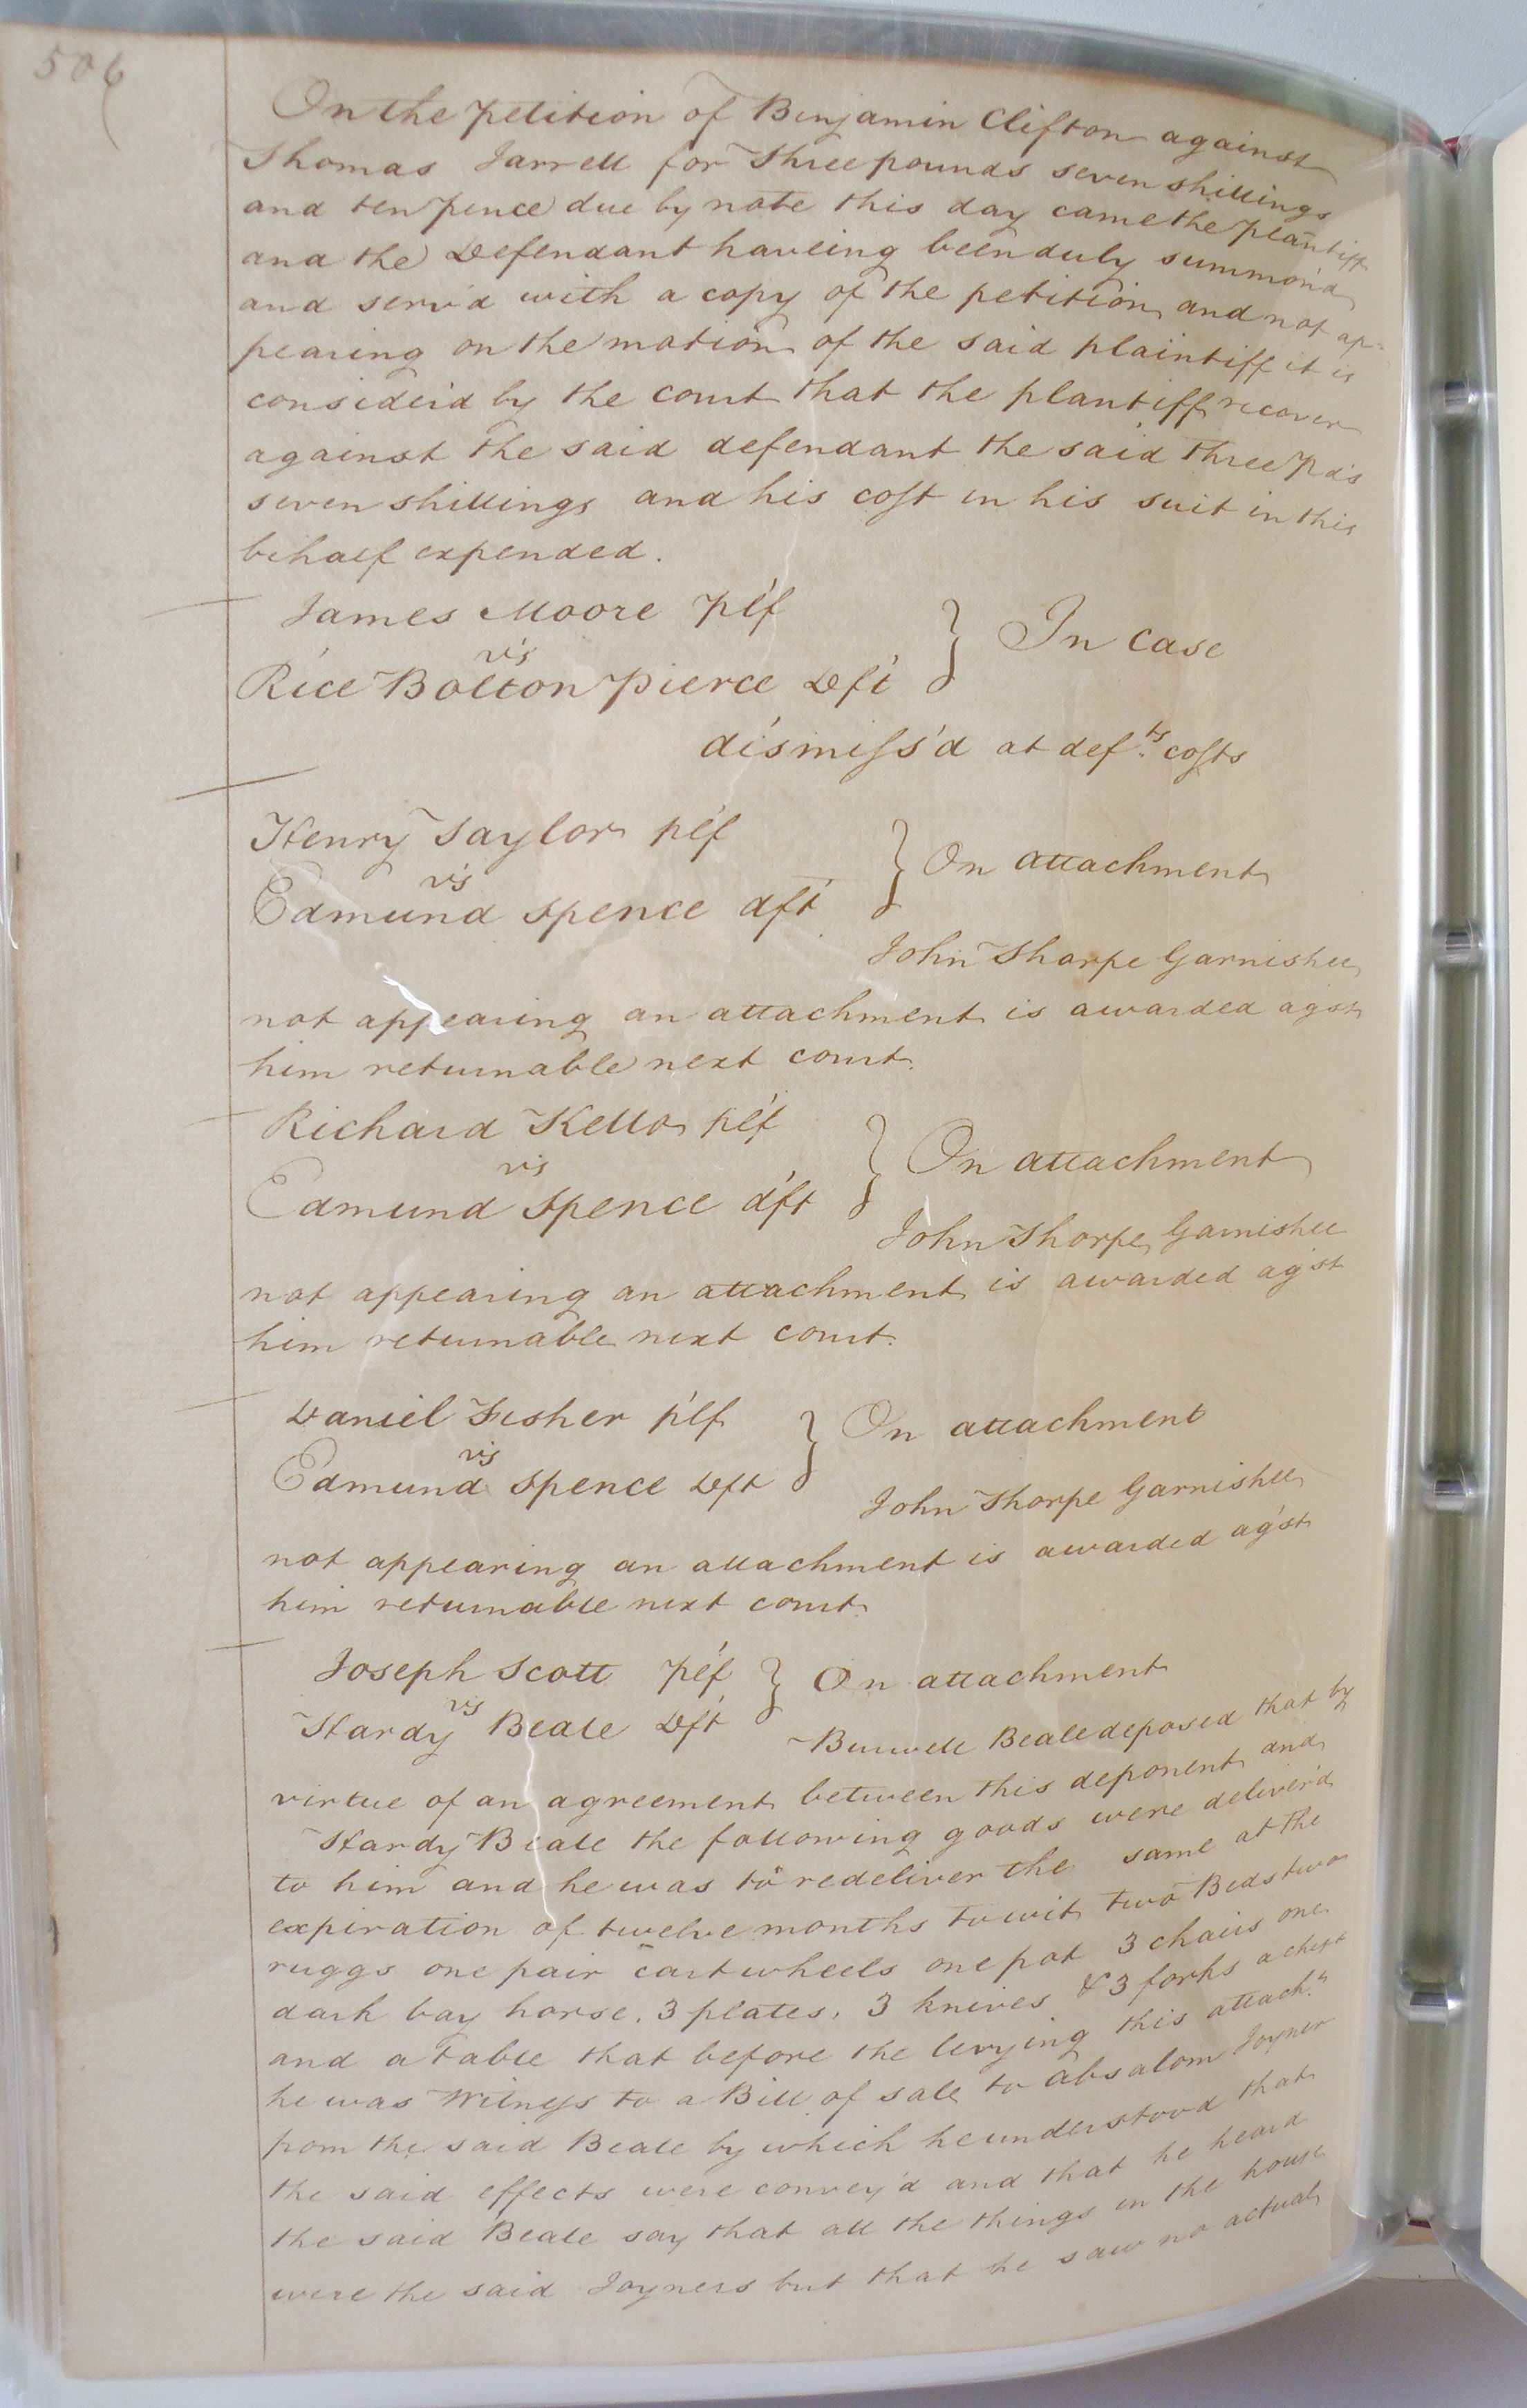 506
On the petition of Benjamin Clifton against
Thomas Jarrell for three pounds seven shillings
and ten pence due by note this day came the plantiff
and the Defendant haveing been duly summon'd
and serv'd with a copy of the petition and not ap=
pearing on the motion of the said plaintiff it is
consider'd by the court that the plantiff recover
against the said defendant the said three pd's
seven shillings and his cost in his suit in this
behalf expended.
James Moore pl'f } In case
v's
Rice Bolton Pierce Df't
dismiss'd at def.ts costs
Henry Taylor pl'f } On attachment
v's
Edmund Spence df't
John Sharpe Garnishee
not appearing an attachment is awarded agst
him returnable next court.
Richard Kello pl'f } On attachment
v's
Edmund Spence d'ft
John Thorpe Garnishee
not appearing an attachment is awarded ag'st
him returnable next court.
Daniel Fisher pl'f } On attachment
v's
Edmund Spence Dft
John Thorpe Garnishee
not appearing an attachment is awarded ag'st
him returnable next court.
Joseph Scott pl'f } On attachment
v's
Hardy Beale Df't
Burwell Beale deposed that by
virtue of an agreement between this deponent and
Hardy Beale the following goods were deliver'd
to him and he was to redeliver the same at the
expiration of twelve months to wit two Beds two
ruggs one pair cart wheels one pot 3 chairs one
dark bay horse, 3 plates, 3 knives & 3 forks a chest
and a table that before the levying this attach.n
he was Witness to a Bill of sale to absalom Joyner
from the said Beale by which he understood that
the said effects were convey'd and that he heard
the said Beale say that all the things in the house
were the said Joyners but that he saw no actual